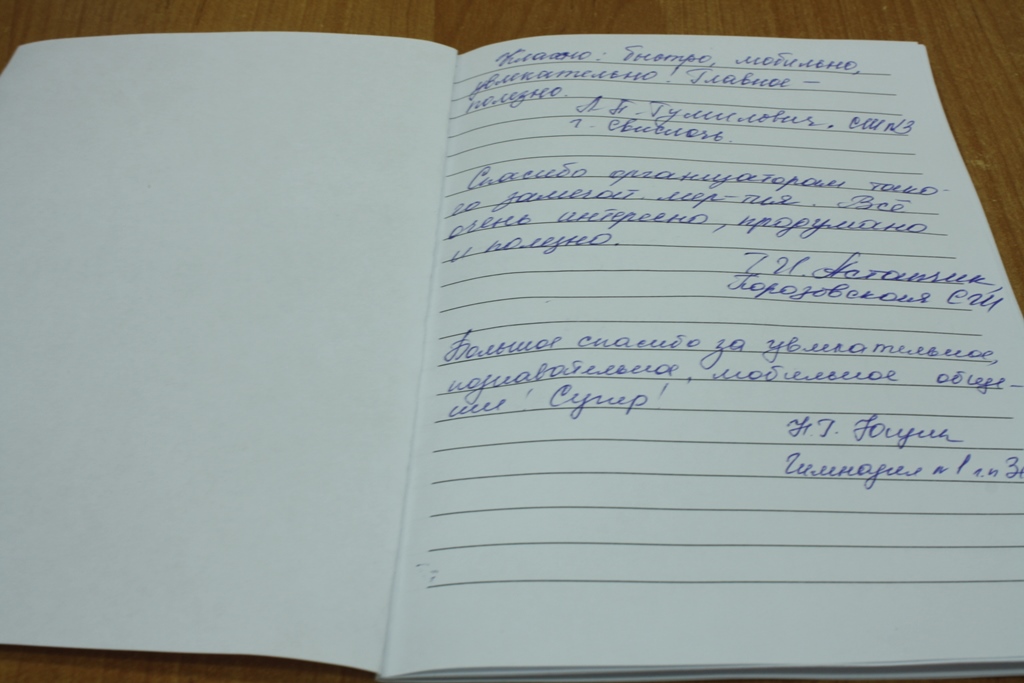 Классно: быстро, мобильно,
увлекательно! Главное –
полезно.
Л.П. Гумилович. СШ №3
г. Свислочь.
Спасибо организаторам тако-
го замечат. мер-тия. Всё
очень интересно, продумано
и полезно.
Т.И. Астапчик,
Порозовская СШ
Большое спасибо за увлекательное,
познавательное, мобильное обще-
ние! Супер!
Н.Г. Ющик
Гимназия №1 г.п